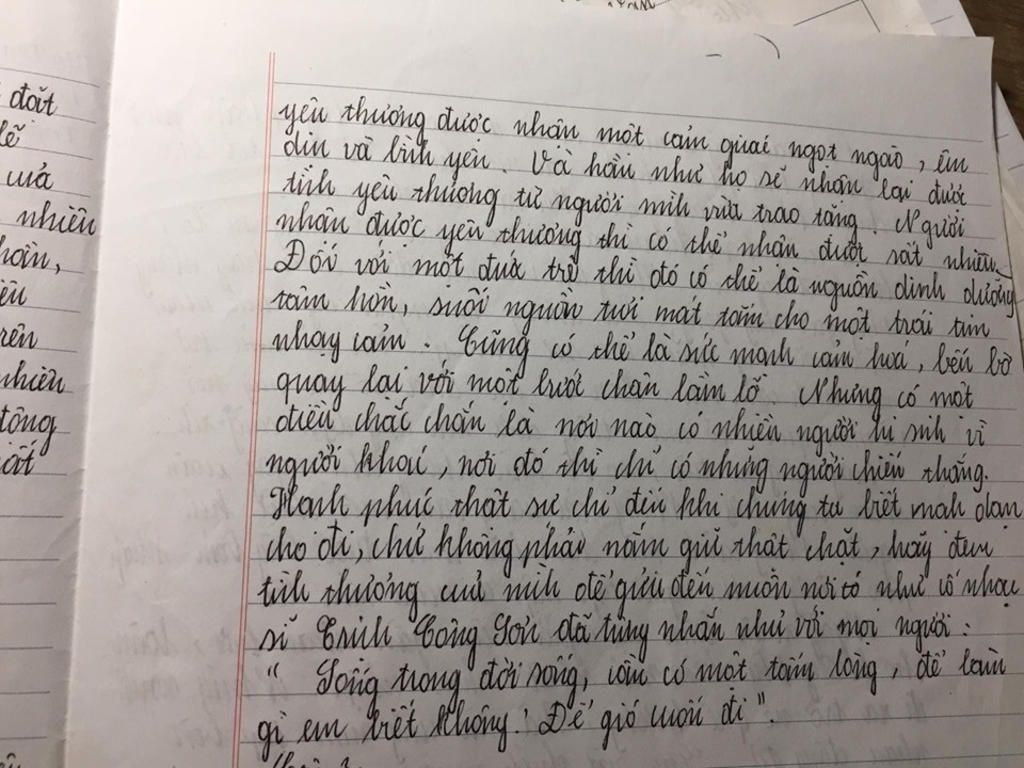 đoãt
lẽ
uả
nhiêu
hồn,
iều
rên
nhiều
tông
uất
yêu thương được nhận một cảm giuác ngọt ngào, êm
dịu và bình yên. Và hầu như họ sẽ nhận lại được
tình yêu thương từ người mình vừa trao tặng. Người
nhận được yêu thương thì có thể nhận được rất nhiều
Đối với một đứa trẻ thì đó có thể là nguồn dinh dưỡng
tâm hồn, suối nguồn tươi mát tắm cho một trái tim
nhạy cảm. Cũng có thể là sức mạnh cảm hoá, bến bờ
quay lại với một bước chân lầm lỡ. Nhưng có một
điều chắc chắn là nơi nào có nhiều người hi sinh vì
người khác, nơi đó thì chỉ có những người chiến thắng.
Hạnh phúc thật sự chỉ đến khi chúng ta biết mạnh dạn
cho đi, chứ không phải nắm giữ thật chặt, hãy đem
tình thương của mình để gửi đến muôn nơi có như cố nhạc
sĩ Trịnh Công Sơn đã từng nhắn nhủ với mọi người:
" Sống trong đời sống, cần có một tấm lòng, để làm
gì em biết không! Để gió cuốn đi ".